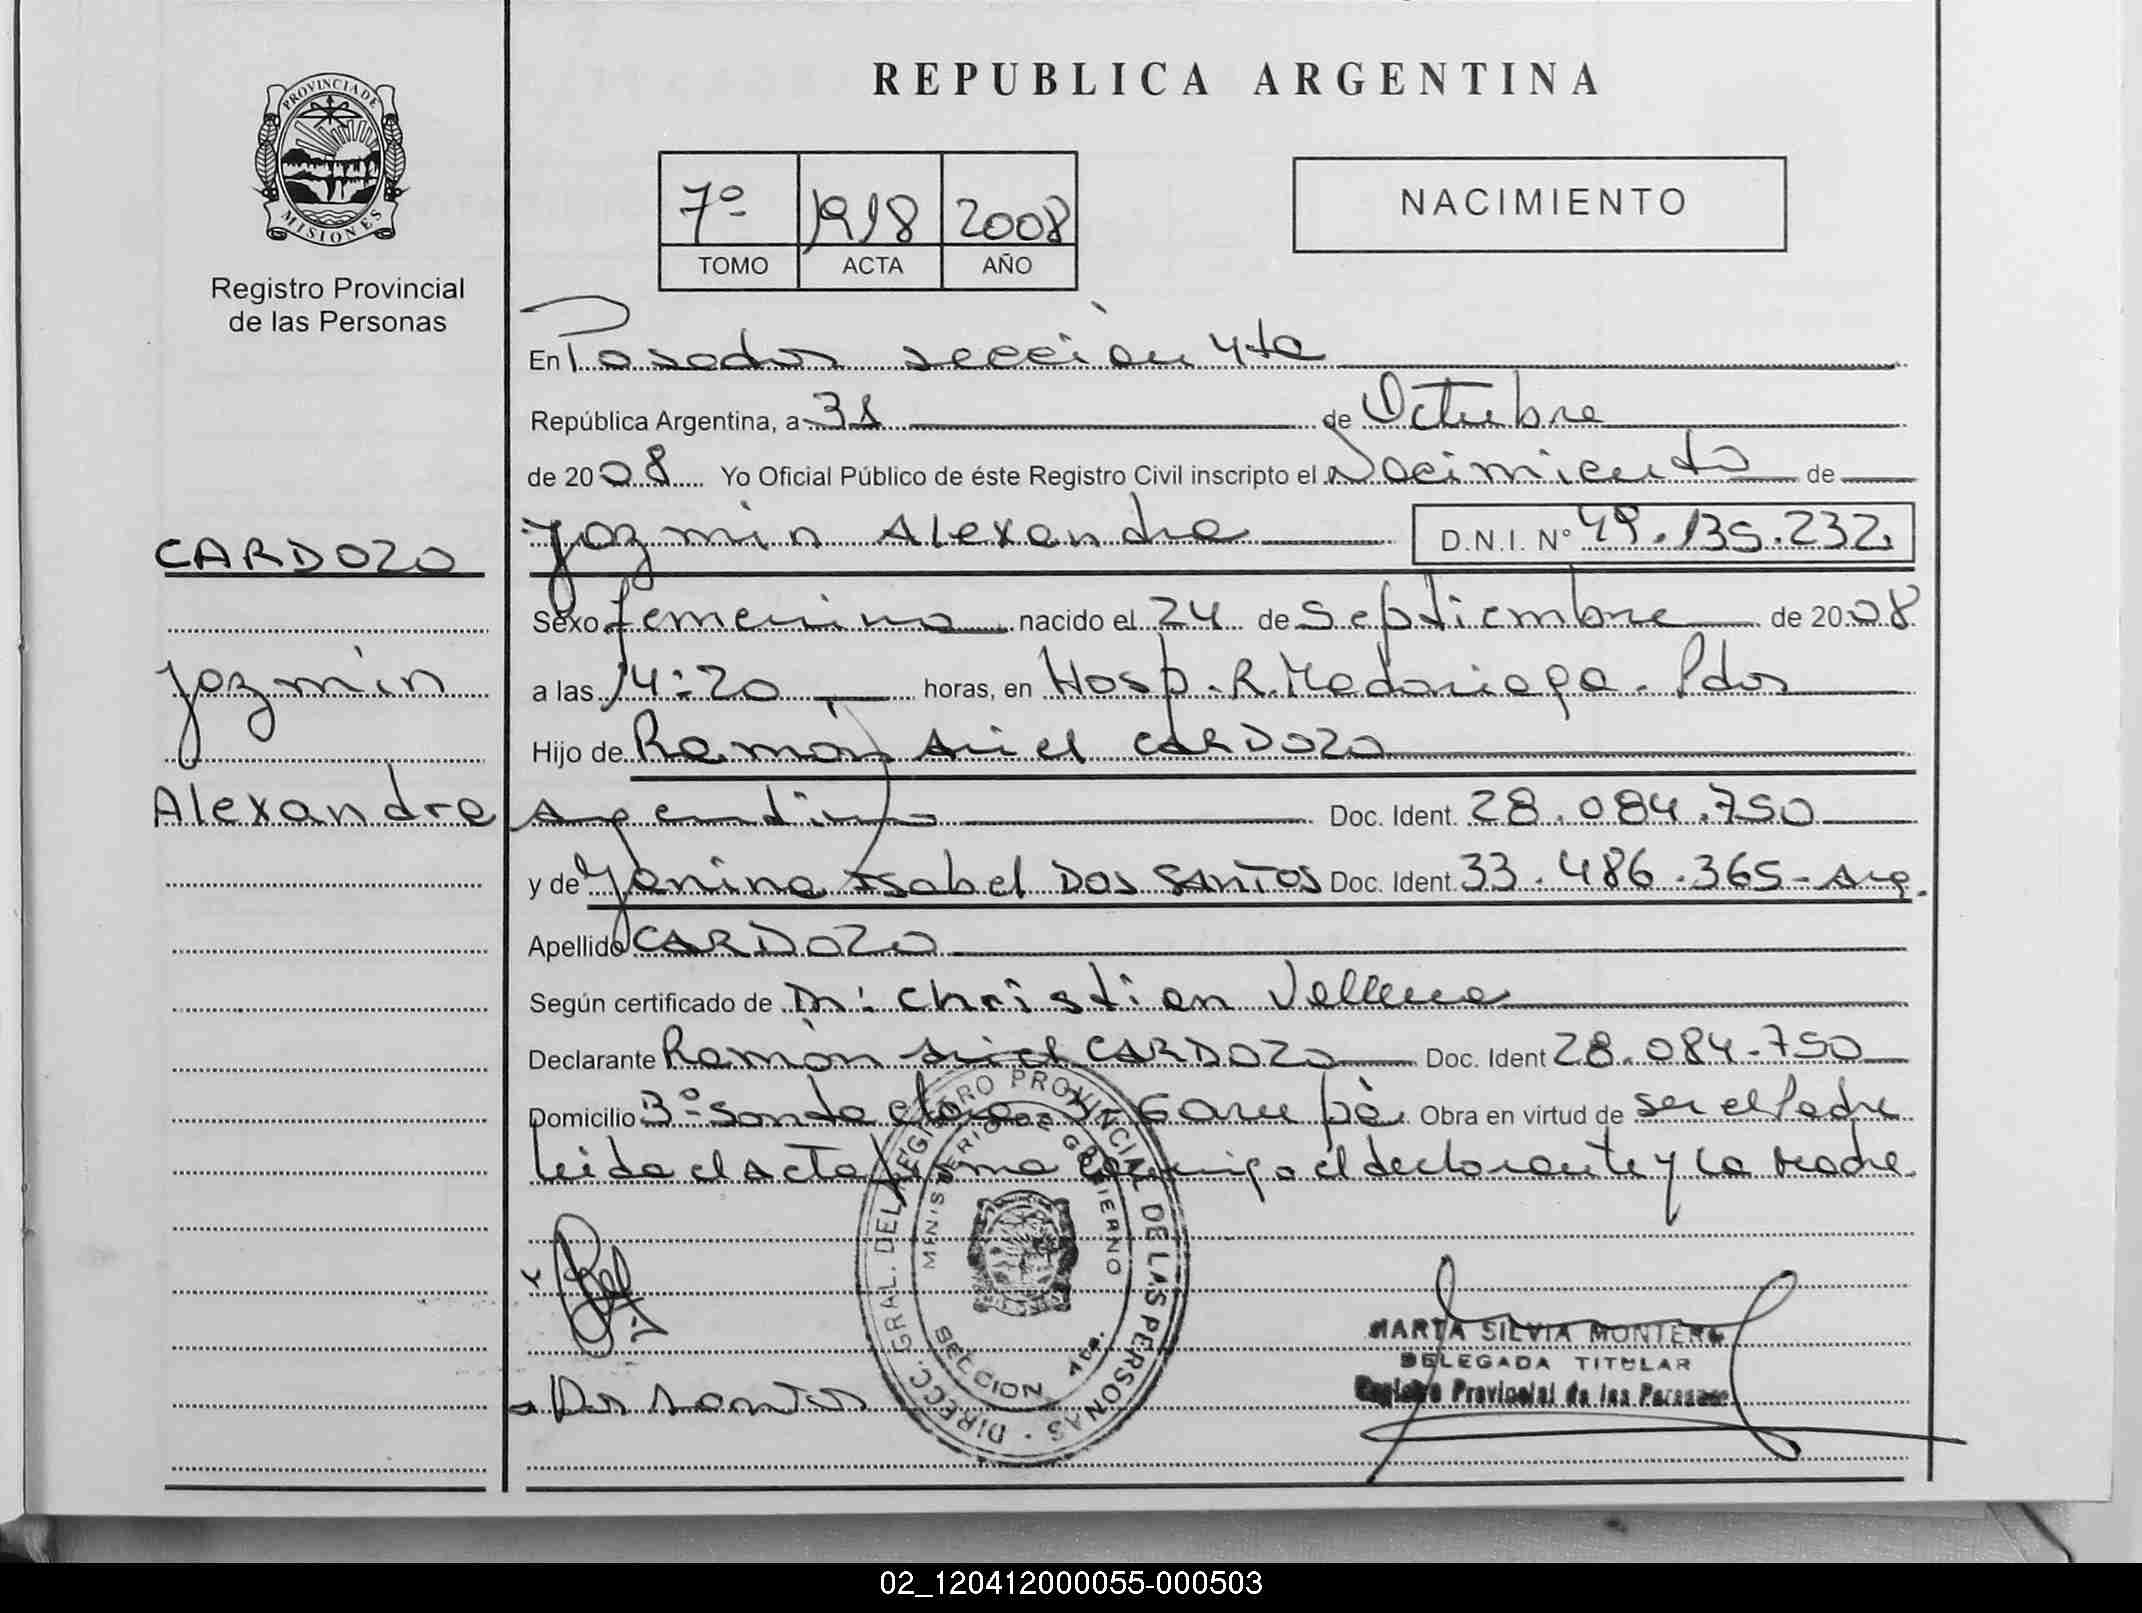 REPUBLICA ARGENTINA
PROVINCIA DE MISIONES
Registro Provincial
de las Personas
7º 1918 2008
TOMO ACTA AÑO
NACIMIENTO
En Posadas sección 4ta
República Argentina, a 31 de Octubre
de 2008 Yo Oficial Público de éste Registro Civil inscripto el Nacimiento de
CARDOZO
Jazmin
Alexandra
Jazmin Alexandra D.N.I. Nº 49.135.232.
Sexo femenino nacido el 24 de Septiembre de 2008
a las 14:20 horas, en Hosp. R. Madariaga. Pdas
Hijo de Ramón Ariel CARDOZO
Argentino Doc. Ident. 28.084.750
y de Yanina Isabel DOS SANTOS Doc. Ident. 33.486.365 - Arg.
Apellido CARDOZO
Según certificado de Dr: Christian
Declarante Ramón Ariel CARDOZO Doc. Ident 28.084.750
Domicilio Bº Santa Clara Garupá Obra en virtud de ser el Padre
Leida el Acta firma conmigo el declarante y la Madre.
DIRECC. GRAL. DEL REGISTRO PROVINCIAL DE LAS PERSONAS
MINISTERIO DE GOBIERNO
SECCION 4ta.
Dos Santos
MARTA SILVIA MONTERO
DELEGADA TITULAR
Registro Provincial de las Personas
02_120412000055-000503